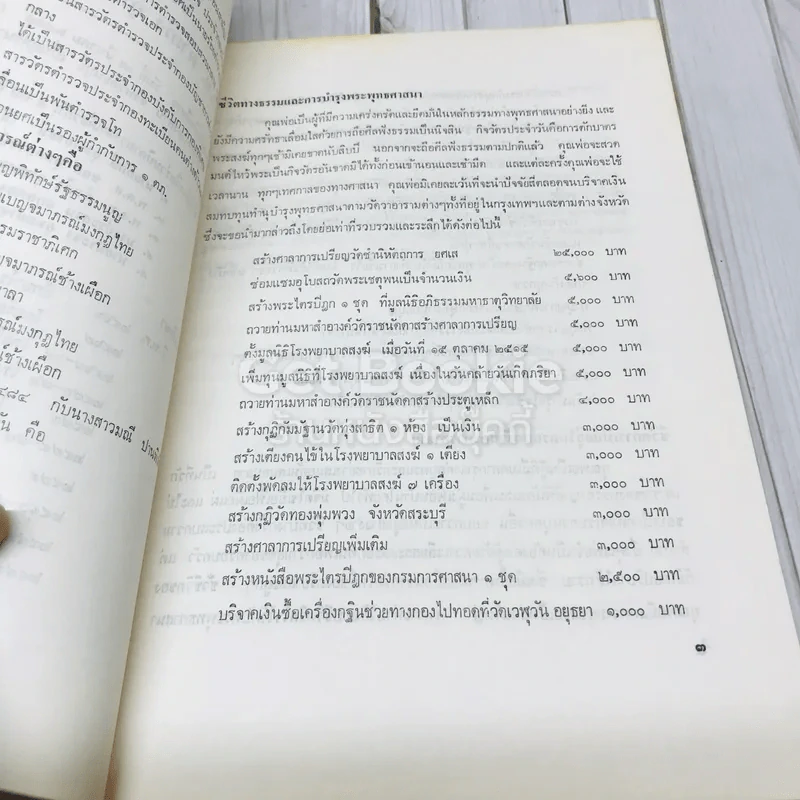 กลาง
ได้เป็นสารวัตรประจำกองบังคับการกองปราบ
สารวัตรตำรวจประจำกองทะเบียนคนต่างด้าว
เลื่อนเป็นพันตำรวจโท
เป็นรองผู้กำกับการ ๑ ตภ.
ภรณ์ต่างๆคือ
พิทักษ์รัฐธรรมนูญ
เบญจมาภรณ์มงกุฎไทย
รมราชาภิเศก
ญจมาภรณ์ช้างเผือก
มาลา
ภรณ์มงกุฎไทย
ณ์ช้างเผือก
๔๘๔ กับนางสาวมณี
คือ
ชีวิตทางธรรมและการบำรุงพระพุทธศาสนา
คุณพ่อเป็นผู้ที่มีความเคร่งครัดและยึดมั่นในหลักธรรมทางพุทธศาสนาอย่างยิ่ง และ
ยังมีความศรัทธาเลื่อมใสด้วยการถือศีลฟังธรรมเป็นนิจสิน กิจวัตรประจำวันคือการตักบาตร
พระสงฆ์ทุกๆเช้ามิเคยขาดนับสิบปี นอกจากจะถือศีลฟังธรรมตามปกติแล้ว คุณพ่อจะสวด
มนต์ไหว้พระเป็นกิจวัตรอันขาดมิได้ทั้งก่อนเข้านอนและเช้ามืด และแต่ละครั้งคุณพ่อจะใช้
เวลานาน ทุกๆเทศกาลของทางศาสนา คุณพ่อมิเคยละเว้นที่จะนำปัจจัยสี่ตลอดจนบริจาคเงิน
สมทบทุนทำนุบำรุงพุทธศาสนาตามวัดวาอารามต่างๆทั้งที่อยู่ในกรุงเทพฯและตามต่างจังหวัด
ซึ่งจะขอนำมากล่าวถึงโดยย่อเท่าที่รวบรวมและระลึกได้ดังต่อไปนี้
สร้างศาลาการเปรียญวัดชำนิหัตถการ ยศเส ๒๕,๐๐๐ บาท
ซ่อมแซมอุโบสถวัดพระเชตุพนเป็นจำนวนเงิน ๕,๖๐๐ บาท
สร้างพระไตรปิฎก ๑ ชุด ที่มูลนิธิอภิธรรมมหาธาตุวิทยาลัย ๕,๐๐๐ บาท
ถวายท่านมหาสำองค์วัดราชนัดดาสร้างศาลาการเปรียญ ๕,๐๐๐ บาท
ตั้งมูลนิธิโรงพยาบาลสงฆ์ เมื่อวันที่ ๑๕ ตุลาคม ๒๕๑๕ ๕,๐๐๐ บาท
เพิ่มทุนมูลนิธิที่โรงพยาบาลสงฆ์ เนื่องในวันคล้ายวันเกิดภริยา ๕,๐๐๐ บาท
ถวายท่านมหาสำองค์วัดราชนัดดาสร้างประตูเหล็ก ๔,๐๐๐ บาท
สร้างกุฏิกัมมัฐานวัดทุ่งสาธิต ๑ ห้อง เป็นเงิน ๓,๐๐๐ บาท
สร้างเตียงคนไข้ในโรงพยาบาลสงฆ์ ๑ เตียง ๓,๐๐๐ บาท
ติดตั้งพัดลมให้โรงพยาบาลสงฆ์ ๗ เครื่อง ๓,๐๐๐ บาท
สร้างกุฏิวัดทองพุ่มพวง จังหวัดสระบุรี ๓,๐๐๐ บาท
สร้างศาลาการเปรียญเพิ่มเติม ๓,๐๐๐ บาท
สร้างหนังสือพระไตรปิฎกของกรมการศาสนา ๑ ชุด ๒,๕๐๐ บาท
บริจาคเงินซื้อเครื่องกฐินช่วยทางกองไปทอดที่วัดเวฬุวัน อยุธยา ๑,๐๐๐ บาท
๓
Get Bookie
ร้านหนังสือบุ๊คกี้